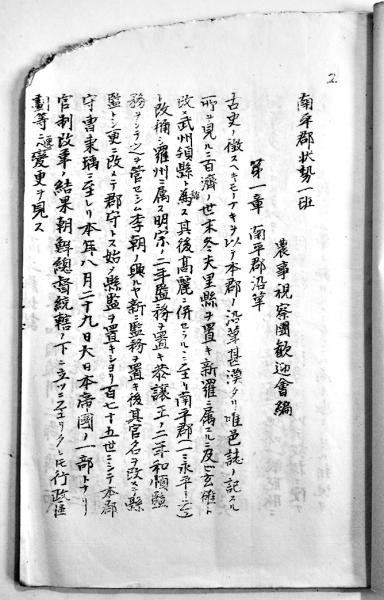 2
南平郡状勢一班
農事視察團歓迎會編
第一章 南平郡沿革
古史ノ徴スヘキモノナキヲ以テ本郡ノ沿革甚漠タリ唯邑誌ノ記スル
所ヲ見ルニ百濟ノ世未冬夫里縣ヲ置キ新羅ニ属スルニ及ヒ玄雄ト
改メ武州領縣ト為ス其後高麗ニ併セラルヽニ至リ南平郡(一ニ永平ト云フ)
ト改稱シ羅州ニ属ス明宗ノ二年監務ヲ置キ恭譲王ノ二年和順監
務ヲシテ之ヲ管セシム李朝ノ興ルヤ新ニ監務ヲ置キ後其官名ヲ改メテ縣
監トシ更ニ改メテ郡守トス始メ縣監ヲ置キシヨリ百七十五世ニシテ本郡
守曹秉瑀ニ至レリ本年八月二十九日大日本帝國ノ一部トナリ
官制改革ノ結果朝鮮總督統轄ノ下ニ立ツニ至リタレトモ行政區
畫等ニハ變更ヲ見ス